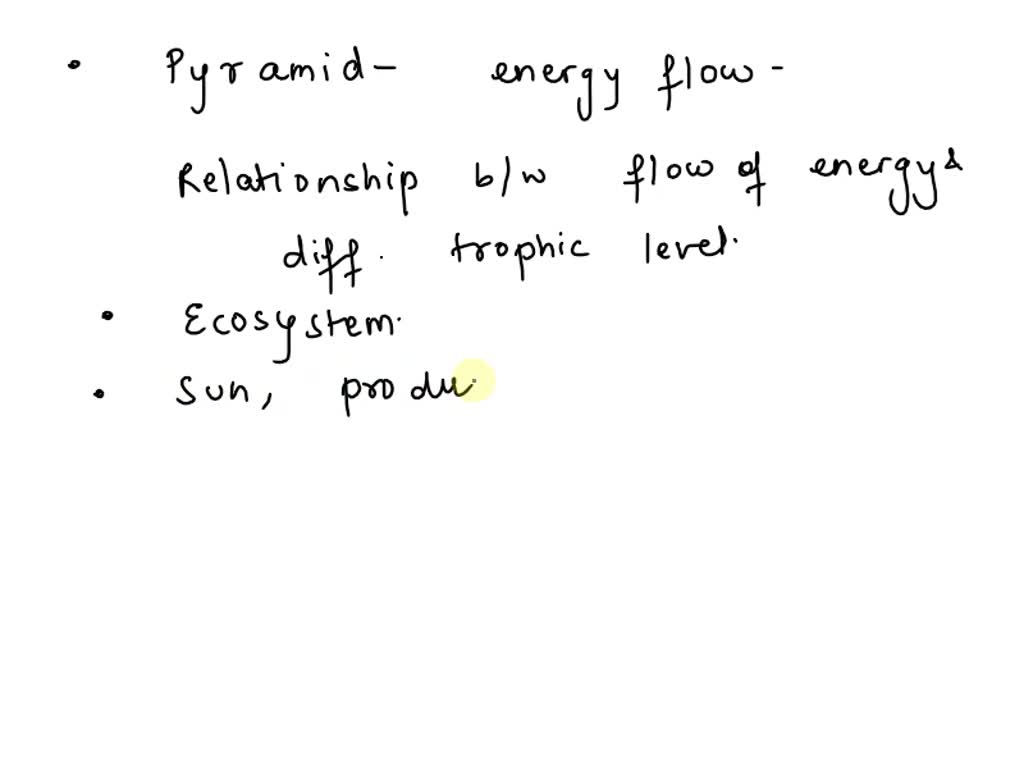 • Pyramid - energy flow -
Relationship b/w flow of energy &
diff. trophic level.
• Ecosystem.
• Sun, produ